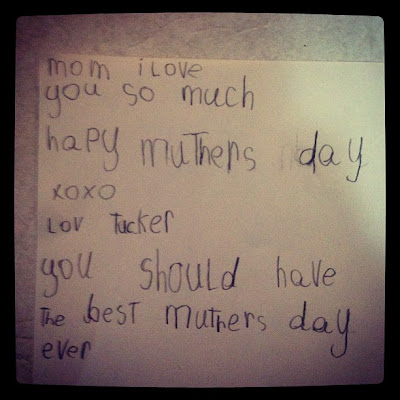 mom i Love
you so much
hapy muthers day
xoxo
Lov Tucker
you should have
The best muthers day
ever